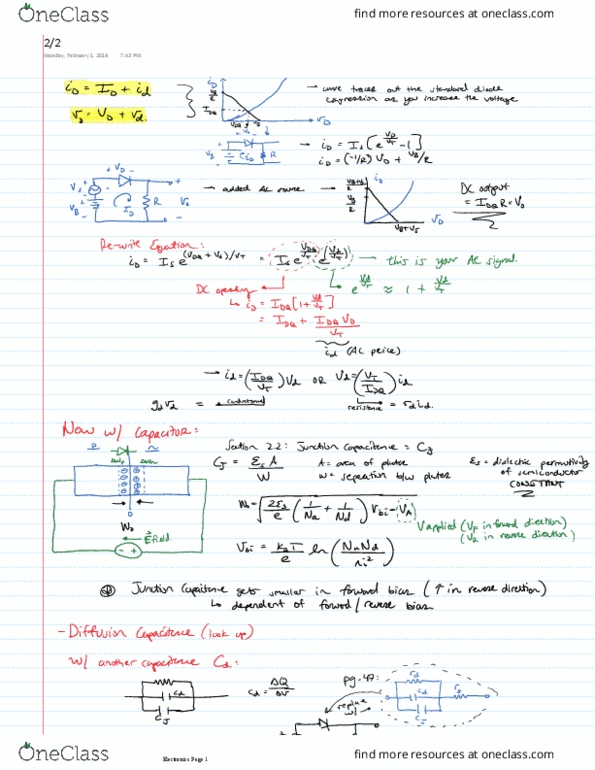 OneClass
find more resources at oneclass.com
2/2
Monday, February 1, 2016 7:42 PM
i_D = I_D + i_d
v_D = V_D + v_d
→ curve traces out the standard diode
expression as you increase the voltage
→ i_D = I_s [e^{V_D/V_T} - 1]
i_D = (-1/R) V_D + V_B/R
→ added AC source →
DC output
= I_{DQ} R = V_0
Re-write Equation:
i_D = I_s e^{(V_{DQ} + V_d)/V_T} = I_s e^{V_{DQ}/V_T} e^{(V_d/V_T)} → this is your AC signal.
DC operating
e^{V_d/V_T} ≈ 1 + V_d/V_T
↳ i_D = I_{DQ} [1 + V_d/V_T]
= I_{DQ} + I_{DQ} V_D / V_T
i_d (AC peice)
→ i_d = (I_{DQ}/V_T) V_d OR V_d = (V_T/I_{DQ}) i_d
g_d v_d = conductance
resistance = r_d i_d.
Now w/ capacitor:
P
N
Section 2.2: Junction Capacitance = C_J
C_J = ε_s A / W
A = area of plates
W = seperation b/w plates
ε_s = dielectric permitivity
of semiconductor
CONSTANT
W = √( 2ε_s/e (1/N_a + 1/N_d) V_{bi} - V_A )
V applied (V_F in forward direction)
(V_R in reverse direction)
W_D
E field
V_{bi} = k_B T / e ln (N_a N_d / n_i^2)
Junction Capacitance gets smaller in forward bias (↑ in reverse direction)
↳ dependent of forward/reverse bias
- Diffusion Capacitence (look up)
w/ another capacitence C_d:
C_d
C_J
C_d = ΔQ/ΔV
pg. 47:
replace w/
r_d
C_d
C_J
r_s
OneClass
Electronics Page 1
find more resources at oneclass.com